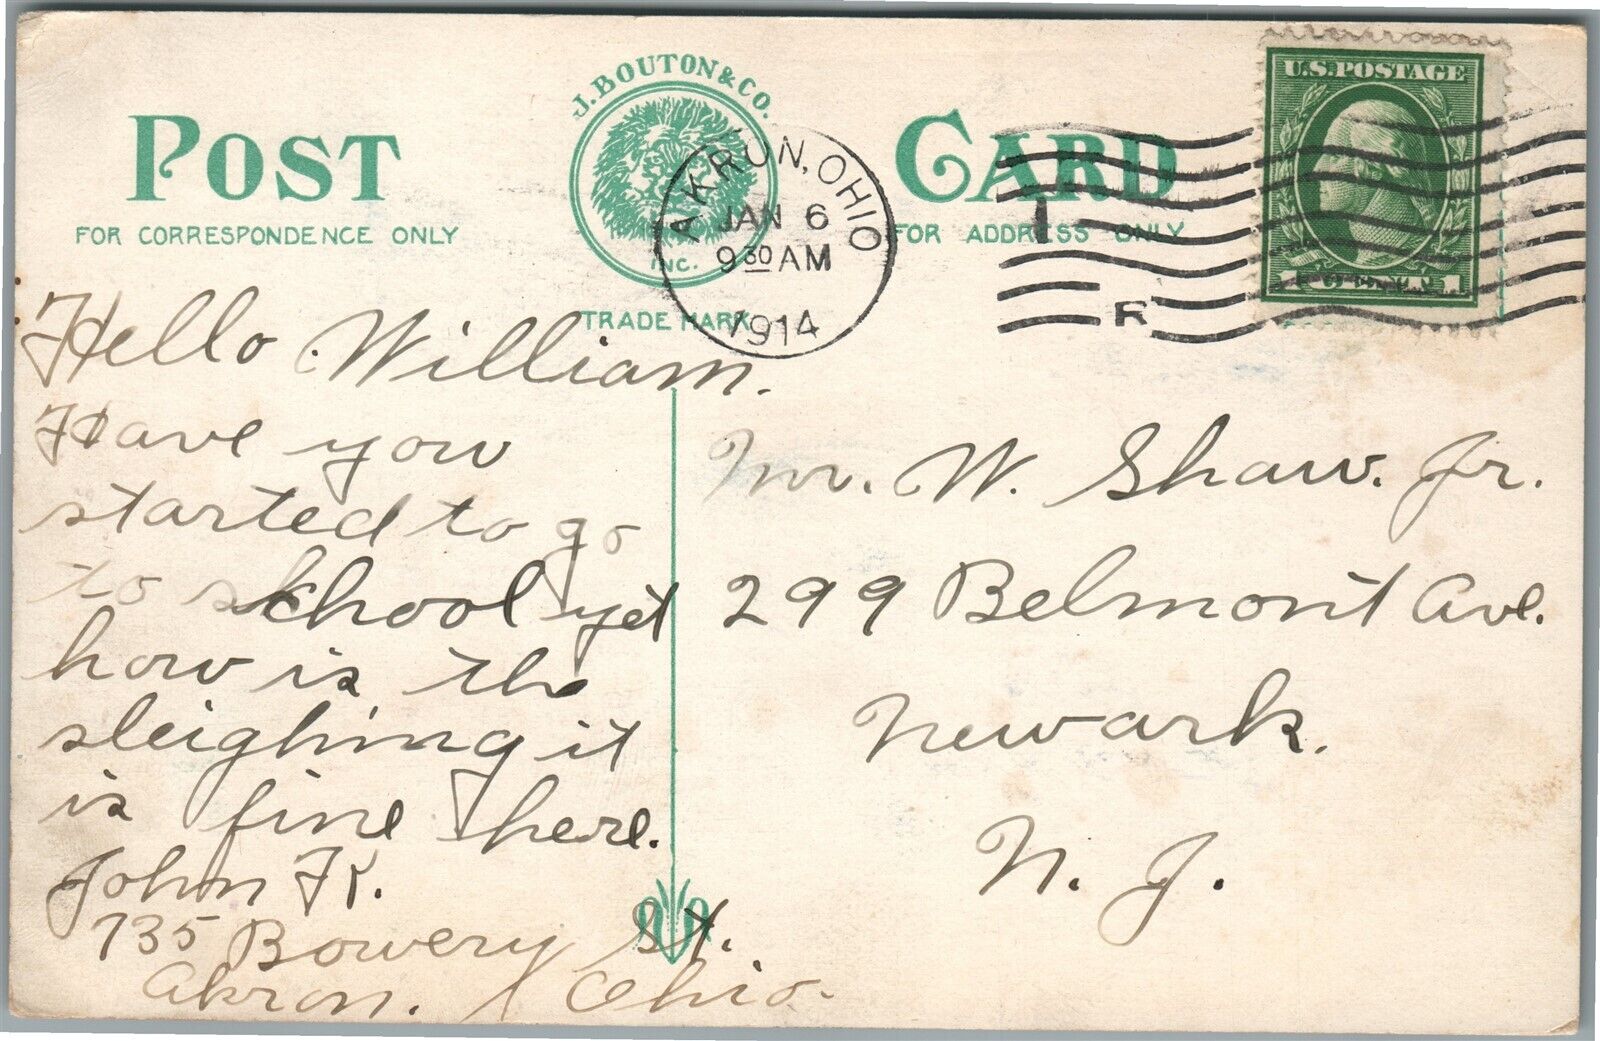 J. BOUTON & CO.
INC.
TRADE MARK
POST CARD
FOR CORRESPONDENCE ONLY
FOR ADDRESS ONLY
AKRON, OHIO
JAN 6
9 30 AM
1914
R
U.S. POSTAGE
1 CENT 1
Hello William.
Have you
started to go
to school yet
how is the
sleighing it
is fine here.
John K.
735 Bowery St.
Akron. Ohio.
Mr. W. Shaw. Jr.
299 Belmont Ave.
Newark.
N. J.